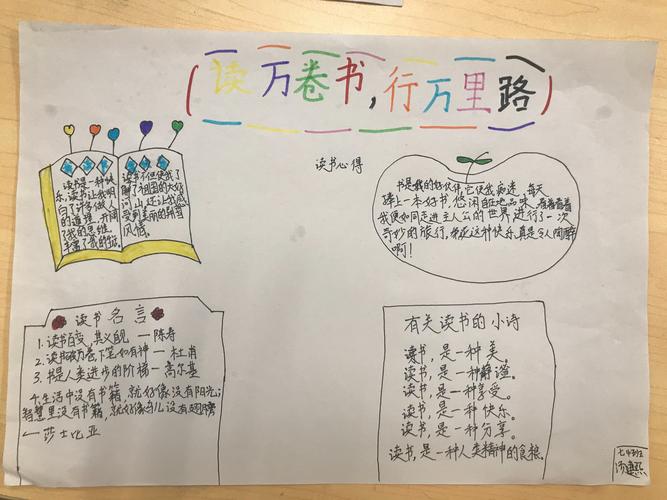 读万卷书，行万里路
读书心得
读书是一种快
乐，读书让我明
白了许多做人
的道理，开阔
了我的思维，
丰富了我的
读书不但使我了
解了祖国的大好
河山，还让我感
受到美丽的异国
风情。
书是我的好伙伴，它使我痴迷，每天
捧上一本好书，悠闲自在地品味，看着看着
我便如同走进主人公的世界，进行了一次
奇妙的旅行，来这种快乐真是令人陶醉
啊！
读书名言
1.读书百变，其义自见 — 陈寿
2.读书破万卷下笔如有神 — 杜甫
3.书是人类进步的阶梯 — 高尔基
4.生活中没有书籍，就好像没有阳光；
智慧里没有书籍，就好像鸟儿没有翅膀
— 莎士比亚
有关读书的小诗
读书，是一种美。
读书，是一种静谧。
读书，是一种享受。
读书，是一种快乐。
读书，是一种分享。
读书，是一种人类精神的食粮。
七班